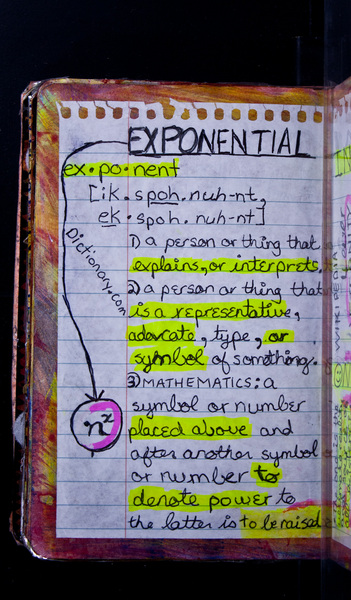 EXPONENTIAL
ex•po•nent
[ik.spoh.nuh-nt,
ek.spoh.nuh-nt]
Dictionary.com
1) a person or thing that
explains, or interprets.
2) a person or thing that
is a representative,
advocate, type, or
symbol of something.
3) MATHEMATICS: a
symbol or number
n²
placed above and
after another symbol
or number to
denote power to
the latter is to be raised
WIKIPEDIA